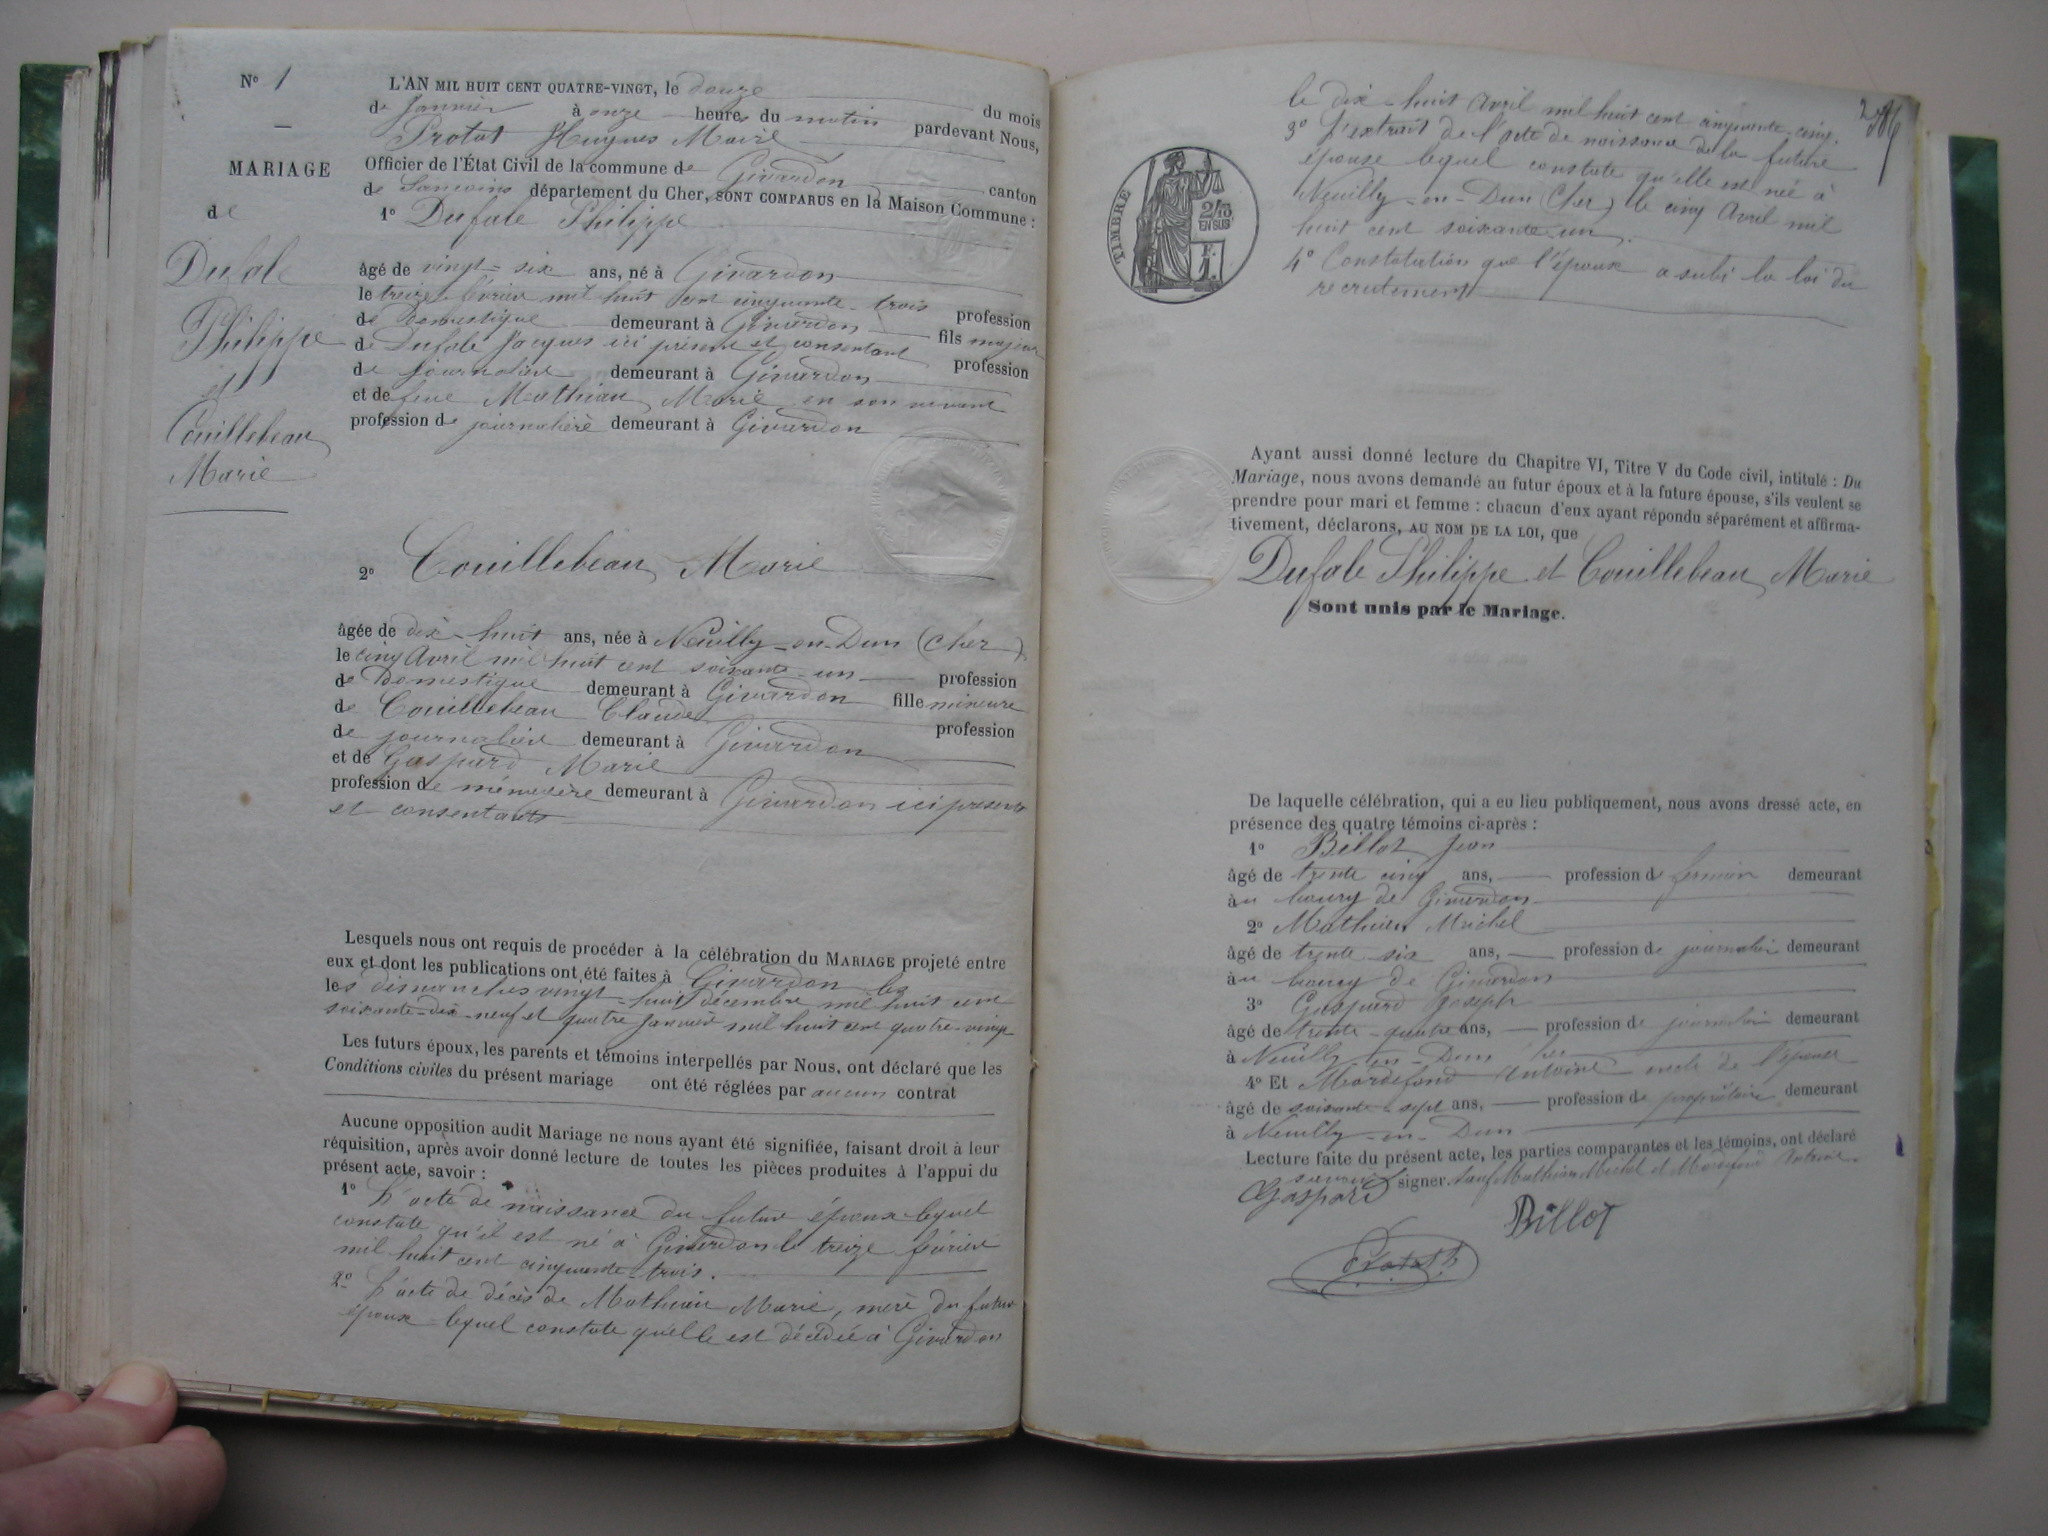 N° 1
MARIAGE
de
Dufale
Philippe
et
Couillebeau
Marie
L'AN MIL HUIT CENT QUATRE-VINGT, le douze du mois
de Janvier à onze heures du matin pardevant Nous,
Protat Hugues Maire
Officier de l'État Civil de la commune de Givardon canton
de Sancoins département du Cher, SONT COMPARUS en la Maison Commune :
1° Dufale Philippe
âgé de vingt-six ans, né à Givardon
le treize février mil huit cent cinquante-trois profession
de Domestique demeurant à Givardon fils majeur
de Dufale Jacques ici présent et consentant profession
de journalier demeurant à Givardon
et de feue Mathieu Marie en son vivant
profession de journalière demeurant à Givardon
2° Couillebeau Marie
âgée de dix-huit ans, née à Neuilly-en-Dun (Cher)
le cinq Avril mil huit cent soixante-un profession
de Domestique demeurant à Givardon fille mineure
de Couillebeau Claude profession
de journalier demeurant à Givardon
et de Gaspard Marie
profession de ménagère demeurant à Givardon ici présents
et consentants
Lesquels nous ont requis de procéder à la célébration du MARIAGE projeté entre
eux et dont les publications ont été faites à Givardon les
les dimanches vingt-huit décembre mil huit cent
soixante-dix-neuf et quatre Janvier mil huit cent quatre-vingt
Les futurs époux, les parents et témoins interpellés par Nous, ont déclaré que les
Conditions civiles du présent mariage ont été réglées par aucun contrat
Aucune opposition audit Mariage ne nous ayant été signifiée, faisant droit à leur
réquisition, après avoir donné lecture de toutes les pièces produites à l'appui du
présent acte, savoir :
1° L'acte de naissance du futur époux lequel
constate qu'il est né à Givardon le treize février
mil huit cent cinquante-trois.
2° L'acte de décès de Mathieu Marie, mère du futur
époux lequel constate qu'elle est décédée à Givardon
le dix-huit Avril mil huit cent cinquante-cinq.
3° L'extrait de l'acte de naissance de la future
épouse lequel constate qu'elle est née à
Neuilly-en-Dun (Cher) le cinq Avril mil
huit cent soixante-un.
4° Constatation que l'époux a subi la loi du
recrutement
TIMBRE
2/10
EN SUS
F.
1.
Ayant aussi donné lecture du Chapitre VI, Titre V du Code civil, intitulé : Du
Mariage, nous avons demandé au futur époux et à la future épouse, s'ils veulent se
prendre pour mari et femme : chacun d'eux ayant répondu séparément et affirma-
tivement, déclarons, AU NOM DE LA LOI, que
Dufale Philippe et Couillebeau Marie
Sont unis par le Mariage.
De laquelle célébration, qui a eu lieu publiquement, nous avons dressé acte, en
présence des quatre témoins ci-après :
1° Billot Jean
âgé de trente cinq ans, profession de demeurant
au bourg de Givardon
2° Mathieu Michel
âgé de trente six ans, profession de journalier demeurant
au bourg de Givardon
3° Gaspard Joseph
âgé de trente-quatre ans, profession de journalier demeurant
à Neuilly-en-Dun Cher
4° Et Mardefond Antoine oncle de l'épouse
âgé de soixante-sept ans, profession de propriétaire demeurant
à Neuilly-en-Dun
Lecture faite du présent acte, les parties comparantes et les témoins, ont déclaré
savoir signer sauf Mathieu Michel et Mardefond Antoine.
Gaspard
Billot
Protat h